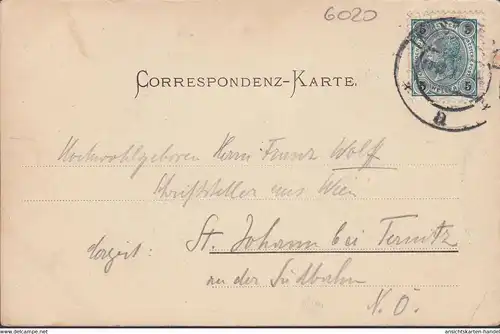 6020
CORRESPONDENZ-KARTE.
5 5
Hochwohlgeboren Herrn Franz Wolff
Schriftsteller aus Wien
derzeit: St. Johann bei Ternitz
an der Südbahn
N. Ö.
www.ansichtskarten-handel.de